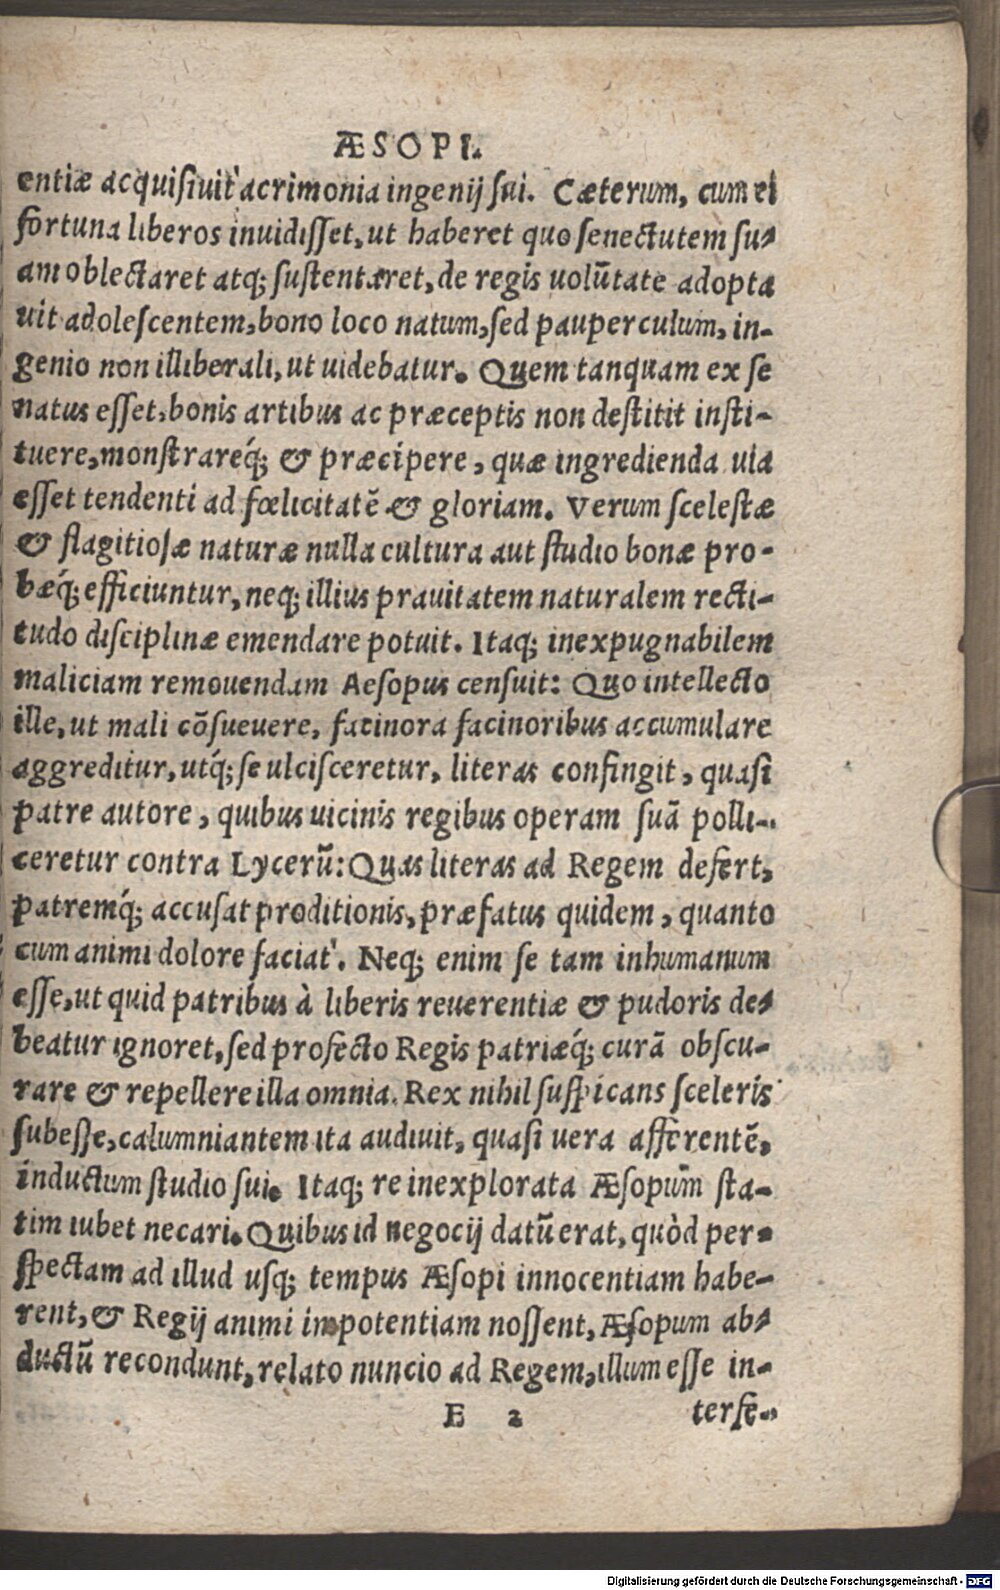 ÆSOPI.
entiæ acquisiuit acrimonia ingenij sui. Cæterum, cum ei
fortuna liberos inuidisset, ut haberet quo senectutem su-
am oblectaret atq; sustentaret, de regis uolūtate adopta
uit adolescentem, bono loco natum, sed pauperculum, in-
genio non illiberali, ut uidebatur. Quem tanquam ex se
natus esset, bonis artibus ac præceptis non destitit insti-
tuere, monstraréq; & præcipere, quæ ingredienda uia
esset tendenti ad fœlicitatē & gloriam. Verum scelestæ
& flagitiosæ naturæ nulla cultura aut studio bonæ pro-
bæq́; efficiuntur, neq; illius prauitatem naturalem recti-
tudo disciplinæ emendare potuit. Itaq; inexpugnabilem
maliciam remouendam Aesopus censuit: Quo intellecto
ille, ut mali cōsueuere, facinora facinoribus accumulare
aggreditur, utq́; se ulcisceretur, literas confingit, quasi
patre autore, quibus uicinis regibus operam suā polli-
ceretur contra Lycerū: Quas literas ad Regem defert,
patremq́; accusat proditionis, præfatus quidem, quanto
cum animi dolore faciat. Neq; enim se tam inhumanum
esse, ut quid patribus à liberis reuerentiæ & pudoris de-
beatur ignoret, sed profecto Regis patriæq́; curā obscu-
rare & repellere illa omnia. Rex nihil suspicans sceleris
subesse, calumniantem ita audiuit, quasi uera afferentē,
inductum studio sui. Itaq; re inexplorata Æsopum sta-
tim iubet necari. Quibus id negocij datū erat, quòd per-
spectam ad illud usq; tempus Æsopi innocentiam habe-
rent, & Regij animi impotentiam nossent, Æsopum ab-
ductū recondunt, relato nuncio ad Regem, illum esse in-
E 2 terfe-
Digitalisierung gefördert durch die Deutsche Forschungsgemeinschaft - DFG